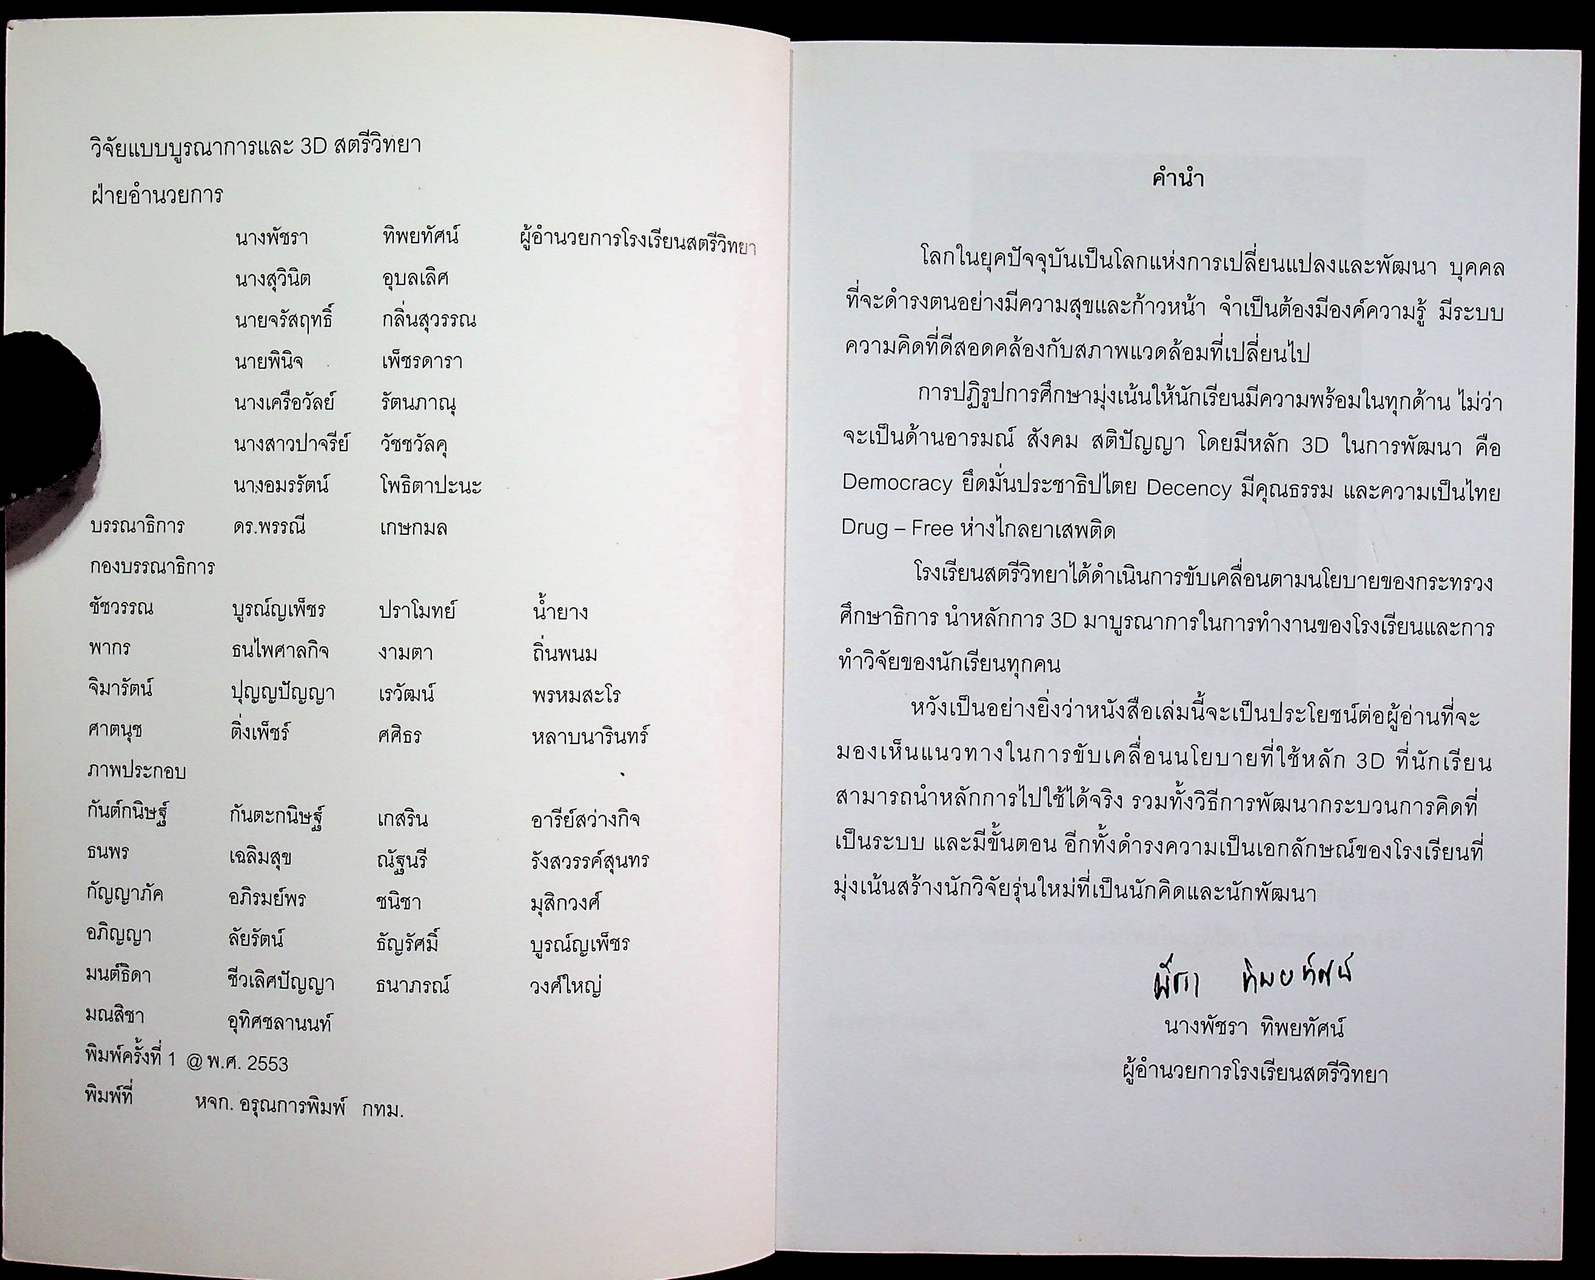 วิจัยแบบบูรณาการและ 3D สตรีวิทยา
ฝ่ายอำนวยการ
นางพัชรา ทิพยทัศน์ ผู้อำนวยการโรงเรียนสตรีวิทยา
นางสุวินิต อุบลเลิศ
นายจรัสฤทธิ์ กลิ่นสุวรรณ
นายพินิจ เพ็ชรดารา
นางเครือวัลย์ รัตนภาณุ
นางสาวปาจรีย์ วัชชวัลคุ
นางอมรรัตน์ โพธิตาปะนะ
บรรณาธิการ ดร.พรรณี เกษกมล
กองบรรณาธิการ
ชัชวรรณ บูรณ์ญเพ็ชร ปราโมทย์ น้ำยาง
พากร ธนไพศาลกิจ งามตา ถิ่นพนม
จิมารัตน์ ปุญญปัญญา เรวัฒน์ พรหมสะโร
ศาตนุช ติ่งเพ็ชร์ ศศิธร หลาบนารินทร์
ภาพประกอบ
กันต์กนิษฐ์ กันตะกนิษฐ์ เกสริน อารีย์สว่างกิจ
ธนพร เฉลิมสุข ณัฐนรี รังสวรรค์สุนทร
กัญญาภัค อภิรมย์พร ชนิชา มุสิกวงศ์
อภิญญา ลัยรัตน์ ธัญรัศมิ์ บูรณ์ญเพ็ชร
มนต์ธิดา ชีวเลิศปัญญา ธนาภรณ์ วงศ์ใหญ่
มณสิชา อุทิศชลานนท์
พิมพ์ครั้งที่ 1 @ พ.ศ. 2553
พิมพ์ที่ หจก. อรุณการพิมพ์ กทม.
คำนำ
โลกในยุคปัจจุบันเป็นโลกแห่งการเปลี่ยนแปลงและพัฒนา บุคคล
ที่จะดำรงตนอย่างมีความสุขและก้าวหน้า จำเป็นต้องมีองค์ความรู้ มีระบบ
ความคิดที่ดีสอดคล้องกับสภาพแวดล้อมที่เปลี่ยนไป
การปฏิรูปการศึกษามุ่งเน้นให้นักเรียนมีความพร้อมในทุกด้าน ไม่ว่า
จะเป็นด้านอารมณ์ สังคม สติปัญญา โดยมีหลัก 3D ในการพัฒนา คือ
Democracy ยึดมั่นประชาธิปไตย Decency มีคุณธรรม และความเป็นไทย
Drug – Free ห่างไกลยาเสพติด
โรงเรียนสตรีวิทยาได้ดำเนินการขับเคลื่อนตามนโยบายของกระทรวง
ศึกษาธิการ นำหลักการ 3D มาบูรณาการในการทำงานของโรงเรียนและการ
ทำวิจัยของนักเรียนทุกคน
หวังเป็นอย่างยิ่งว่าหนังสือเล่มนี้จะเป็นประโยชน์ต่อผู้อ่านที่จะ
มองเห็นแนวทางในการขับเคลื่อนนโยบายที่ใช้หลัก 3D ที่นักเรียน
สามารถนำหลักการไปใช้ได้จริง รวมทั้งวิธีการพัฒนากระบวนการคิดที่
เป็นระบบ และมีขั้นตอน อีกทั้งดำรงความเป็นเอกลักษณ์ของโรงเรียนที่
มุ่งเน้นสร้างนักวิจัยรุ่นใหม่ที่เป็นนักคิดและนักพัฒนา
พัชรา ทิพยทัศน์
นางพัชรา ทิพยทัศน์
ผู้อำนวยการโรงเรียนสตรีวิทยา